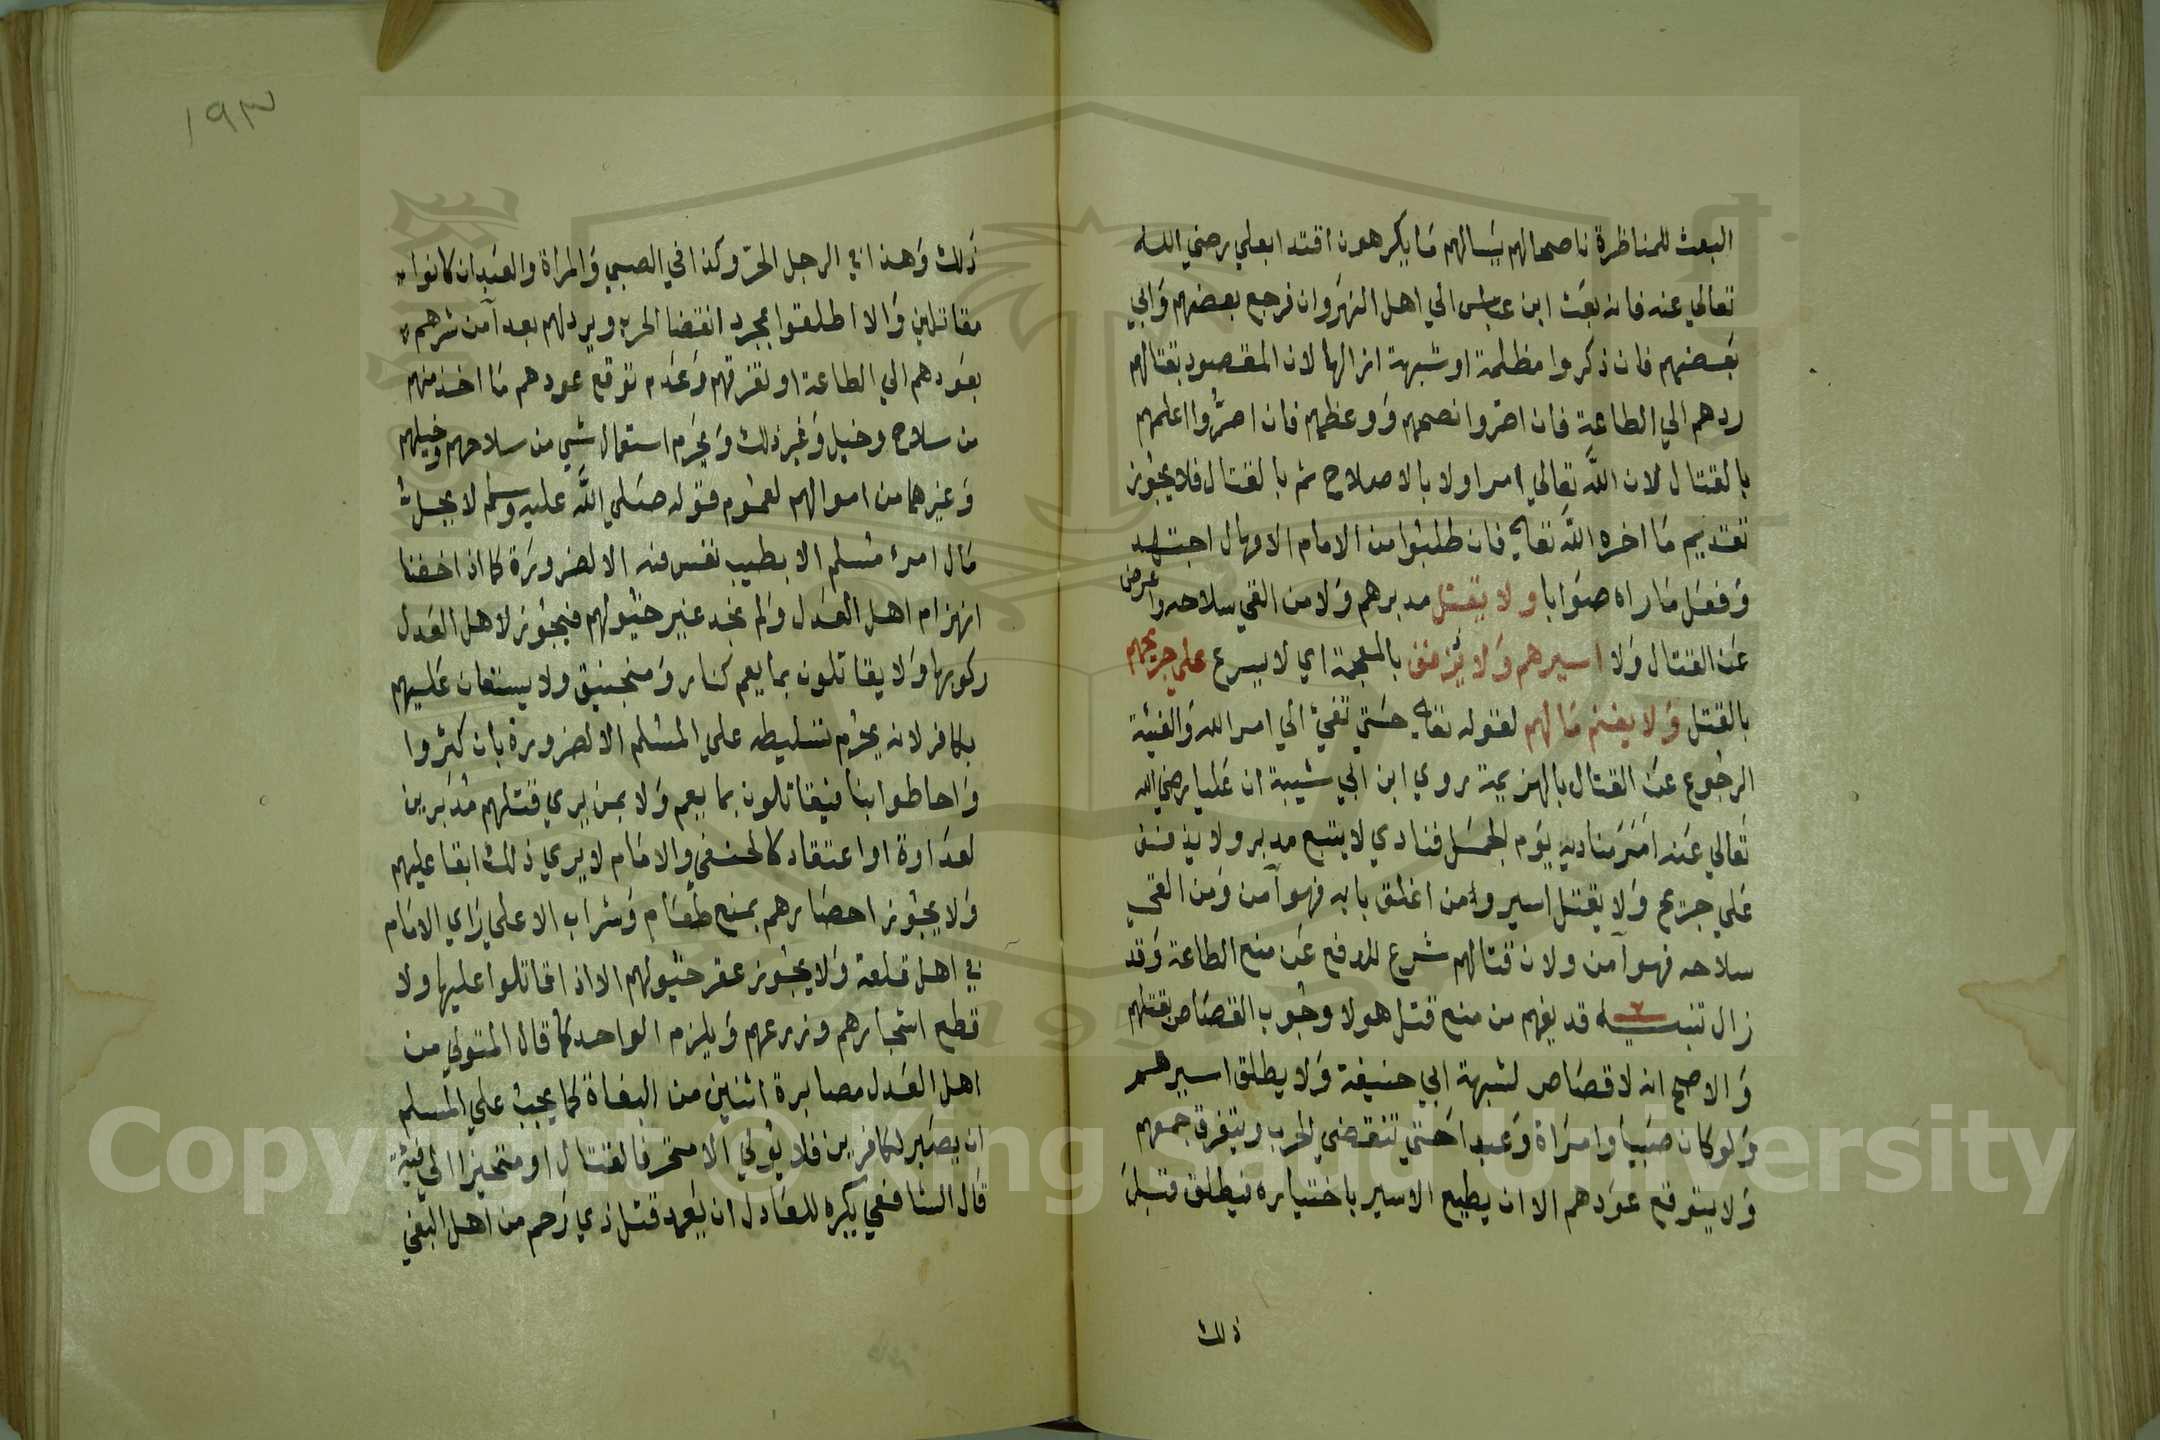 البعث للمناظرة ناصحا لهم يسالهم ما يكرهون اقتدا بعلي رضي الله
تعالي عنه فانه بعث ابن عباس الي اهل النهروان فرجع بعضهم وابي
بعضهم فان ذكروا مظلمة او شبهة ازالها لان المقصود بقتالهم
ردهم الي الطاعة فان اصروا نصحهم ووعظهم فان اصروا اعلمهم
بالقتال لان الله تعالي امر اولا بالاصلاح ثم بالقتال فلا يجوز
تقديم ما اخره الله تعالي فان طلبوا من الامام الامهال اجتهد
وفعل ما راه صوابا ولا يقتل مدبرهم ولا من القي سلاحه واعرض
عن القتال ولا اسيرهم ولا يذفف بالمعجمة اي لا يسرع علي جريحهم
بالقتل ولا يغنم مالهم لقوله تعالي حتي تفيء الي امر الله والفيئة
الرجوع عن القتال بالهزيمة روي ابن ابي شيبة ان عليا رضي الله
تعالي عنه امر مناديه يوم الجمل فنادي لا يتبع مدبر ولا يذفف
علي جريح ولا يقتل اسير ومن اغلق بابه فهو آمن ومن القي
سلاحه فهو آمن ولان قتالهم شرع للدفع عن منع الطاعة وقد
زال تنبيه قد يفهم من منع قتل هولا وجوب القصاص بقتلهم
والاصح انه لا قصاص لشبهة ابي حنيفة ولا يطلق اسيرهم
ولو كان صبيا وامراة وعبدا حتي تنقضي الحرب ويتفرق جمعهم
ولا يتوقع عودهم الا ان يطيع الاسير باختياره فيطلق قبل
ذلك
١٩٣
ذلك وهذا في الرجل الحر وكذا في الصبي والمراة والعبد ان كانوا
مقاتلين والا اطلقوا بمجرد انقضا الحرب ويرد لهم بعد آمن شرهم
بعودهم الي الطاعة او تفرقهم وعدم توقع عودهم ما اخذ منهم
من سلاح وخيل وغير ذلك ويحرم استعمال شي من سلاحهم وخيلهم
وغيرهما من اموالهم لعموم قوله صلي الله عليه وسلم لا يحل
مال امرء مسلم الا بطيب نفس منه الا لضرورة كما اذا خفنا
انهزام اهل العدل ولم نجد غير خيولهم فيجوز لاهل العدل
ركوبها ولا يقاتلون بما يعم كنار ومنجنيق ولا يستعان عليهم
بكافر لانه يحرم تسليطه علي المسلم الا لضرورة بان كثروا
واحاطوا بنا فيقاتلون بما يعم ولا بمن يري قتلهم مدبرين
لعداوة او اعتقاد كالحنفي والامام لا يري ذلك ابقا عليهم
ولا يجوز احصارهم بمنع طعام وشراب الا علي راي الامام
في اهل قلعة ولا يجوز عقر خيولهم الا اذا قاتلوا عليها ولا
قطع اشجارهم وزروعهم ويلزم الواحد كما قال المتولي من
اهل العدل مصابرة اثنين من البغاة كما يجب علي المسلم
ان يصبر لكافرين فلا يولي الا متحرفا لقتال او متحيزا الي فئة
قال الشافعي يكره للعادل ان يعمد قتل ذي رحم من اهل البغي
Copyright © King Saud University